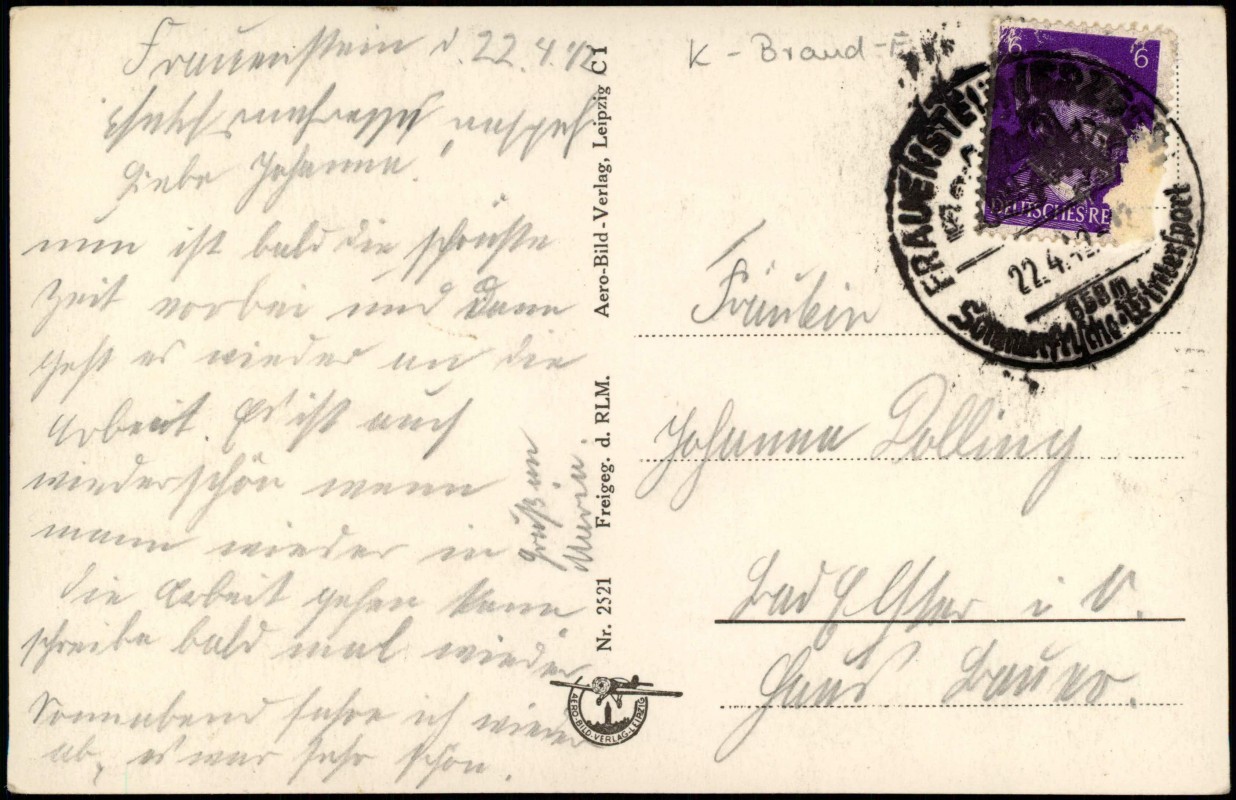 Frauenstein d. 22.4.42
Liebe Johanna!
nun ist bald die schönste
Zeit vorbei und dann
geht es wieder an die
Arbeit. Es ist auch
wiederschön wenn
mann wieder in
die Arbeit gehen kann
schreibe bald mal wieder
Sonnabend fahre ich wieder
ab, es war sehr schön.
Gruß
Nr. 2521 Freigeg. d. RLM. Aero-Bild-Verlag, Leipzig C 1
AERO-BILD-VERLAG-LEIPZIG
K - Brand - E
6 6
DEUTSCHES RE
FRAUENSTEIN
22.4.42
650 m
Sommerfrische Wintersport
Fräulein
Johanna Dolling
Bad Elster i. V.
Haus Bauer.